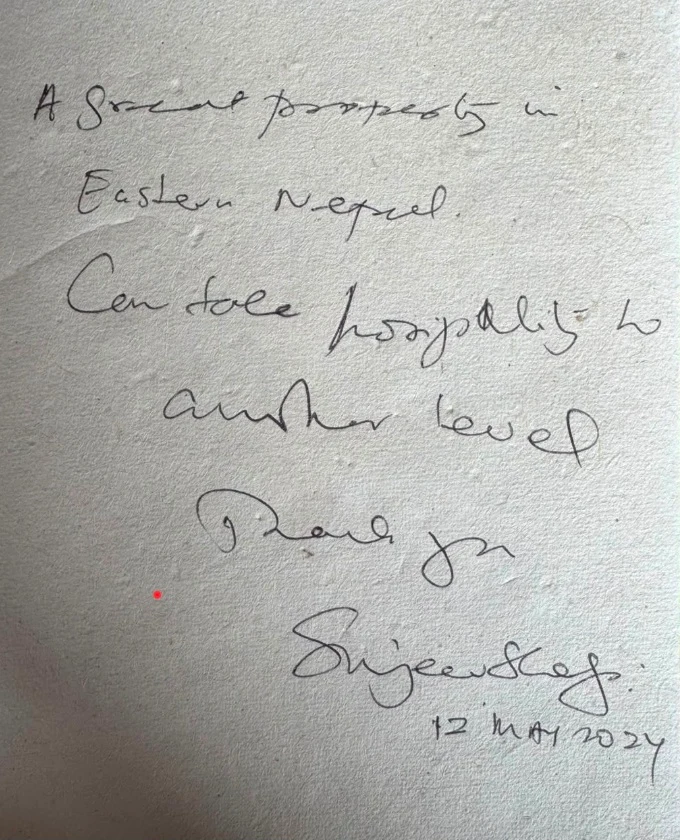 A great property in
Eastern Nepal.
Can take hospitality to
another level
Thank you
12 MAY 2024